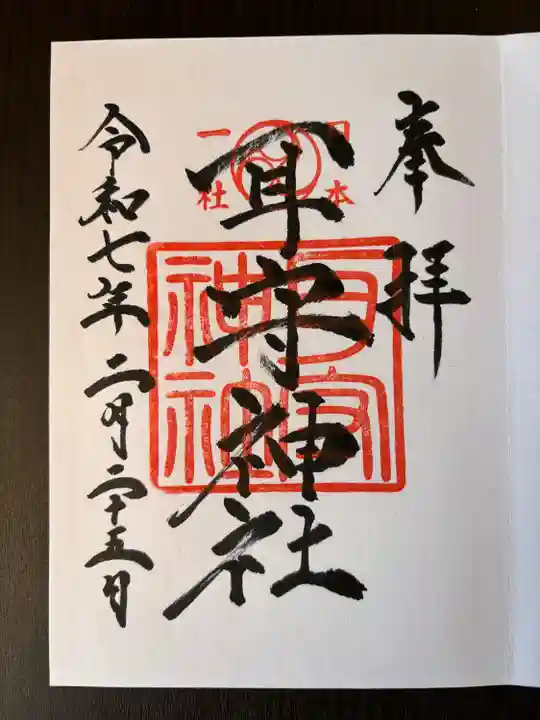 奉拝
日本
一社
耳守神社
耳守
神社
令和七年二月二十五日